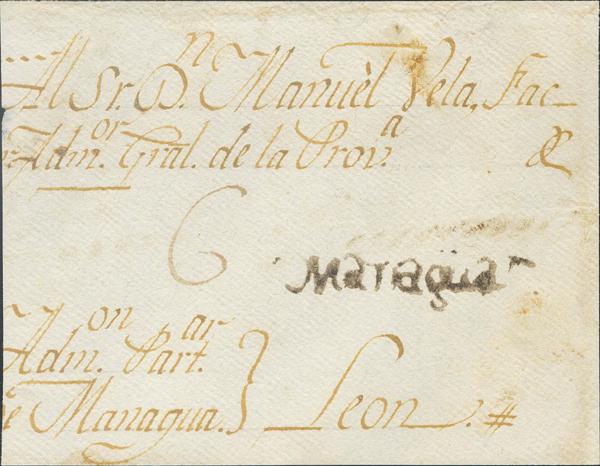 Al Sr. Dn. Manuèl Vela, Fac-
Admor. Gral. de la Prova. &
6
Managua
Admon. Partar.
de Managua. } Leon. #